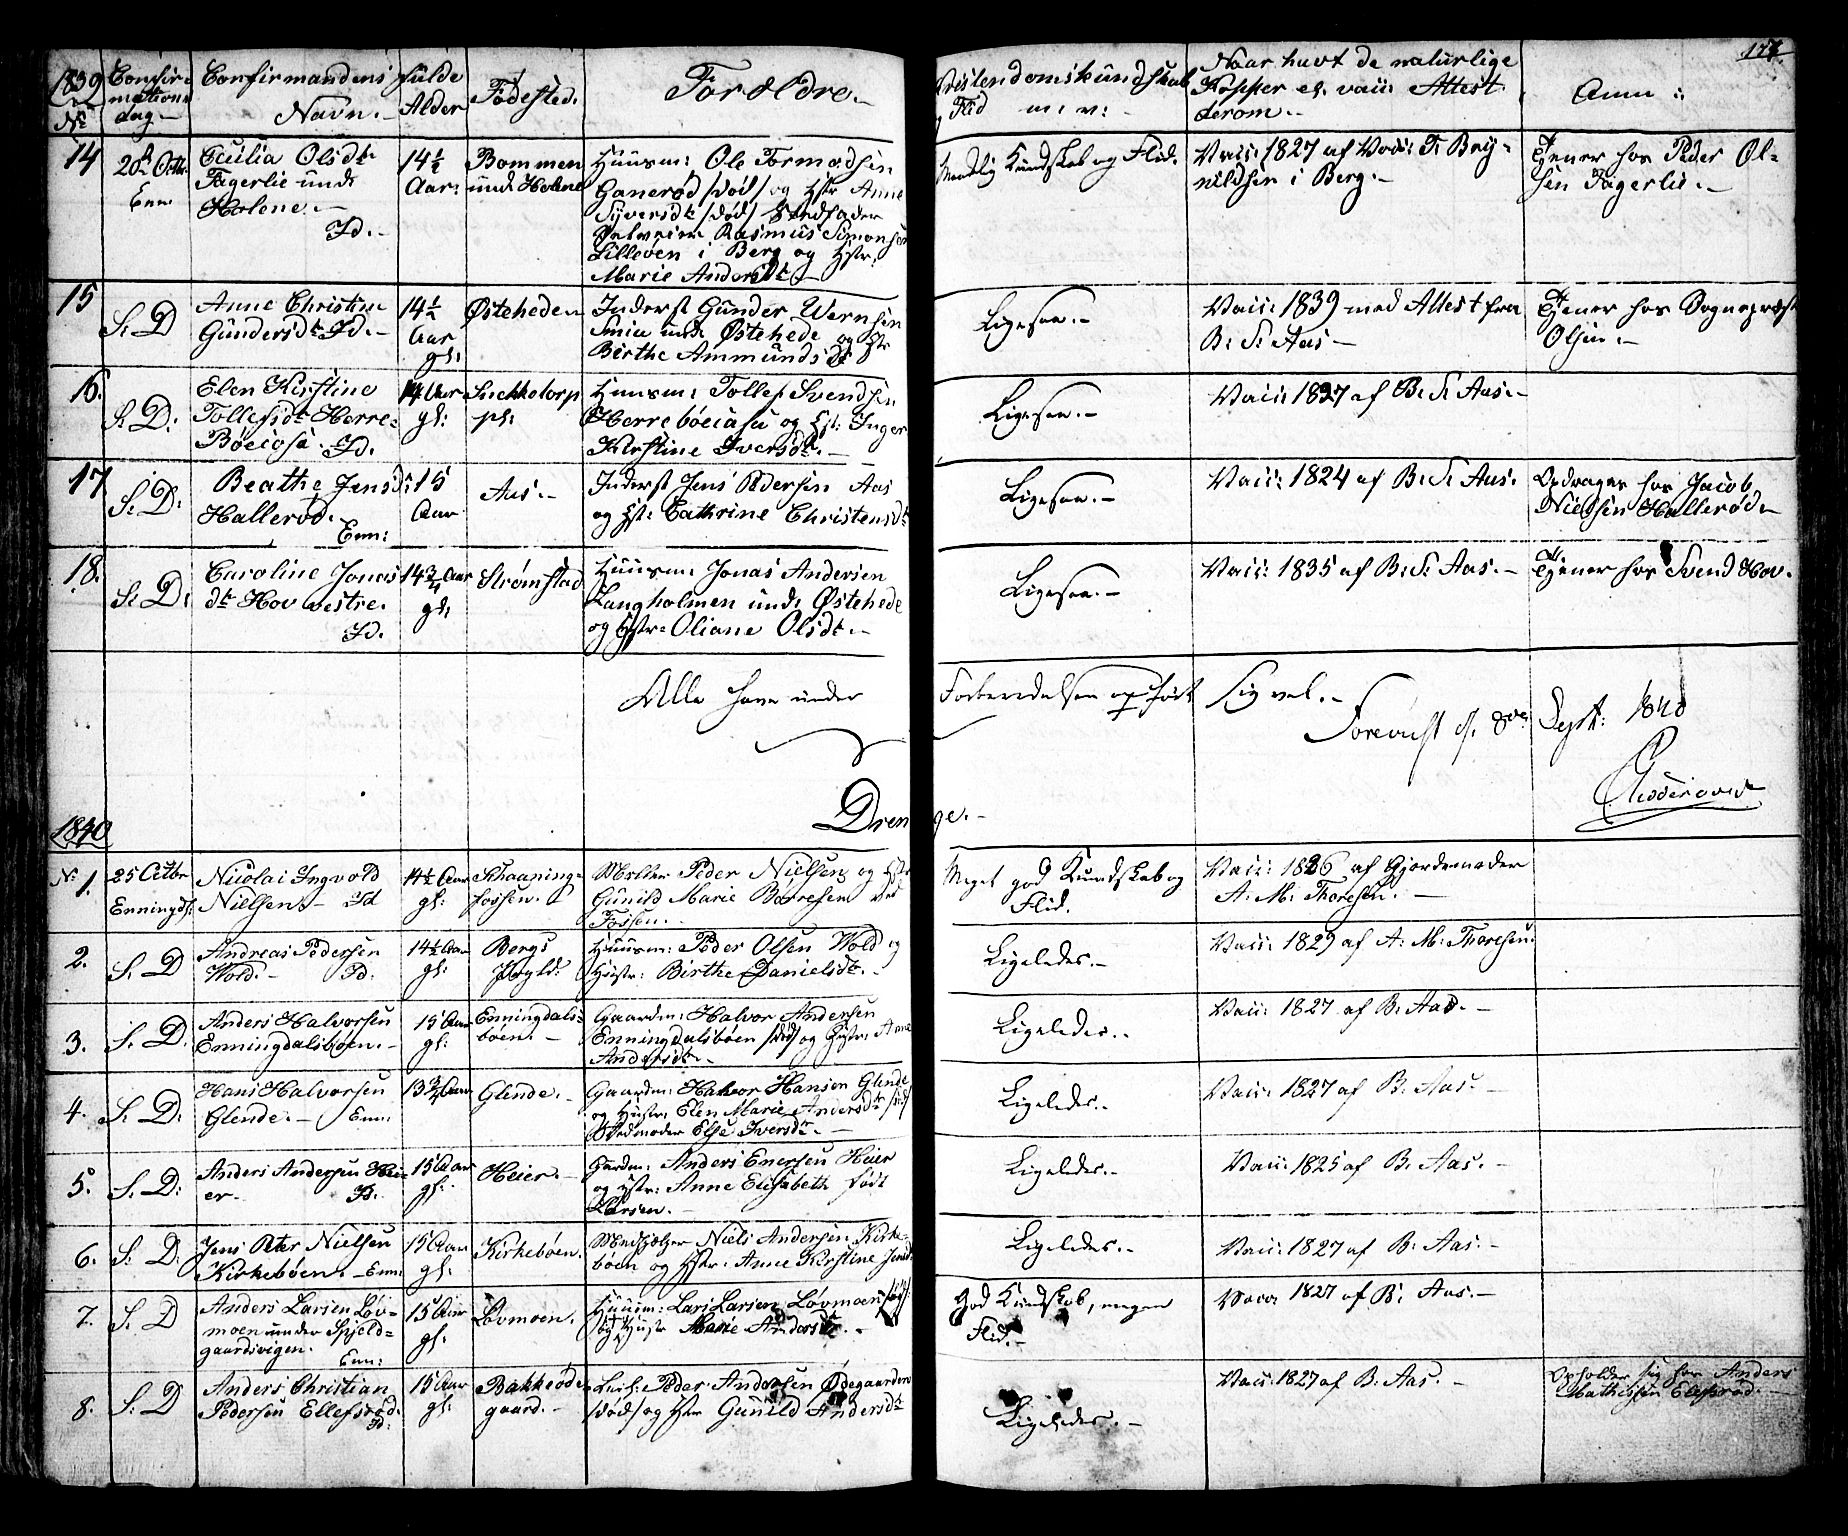 177.
1839
No
Confir-
mations
dag.-
Confirmandens
Navn.-
fulde
Alder
Fødested.
Forældre.-
Christendomskundskab
og Flid m: v:
Naar havt de naturlige
Kopper el. vacc: Attest
derom.-
Anm:
14
20de Octbr
Enn:
Cecilia Olsdt:
Fagerlie und:
Holene.-
Id.-
14½
Aar:
Bommen
und: Holene
Huusm: Ole Tormodsen
Ganerød /død/ og Hstr Anne
Syversdt: /død/ Stedfader
Rasmus Simonsen
Lilleøen i Berg og Hstr:
Marie Andersdt:
Kundskab og Flid.
Vacc: 1827 af Vacc: T. Bryn-
nildsen i Berg.-
Tjener hos Peder Ol-
sen Fagerlie.-
15
S: D
Anne Christine
Gundersdt: Id.-
14½
Aar
gl:
Østeheden
Inderst Gunder Wernsen
und: Østehede og Hstr
Birthe Ammundsdt:
Ligesaa.-
Vacc: 1839 med Attest fra
B: S: Aas-
Tjener hos Sognepræst
Olsen.-
16.
S: D:
Elen Kirstine
Tollefsdt: Herre-
Bøeiasa. Id.
14 Aar
gl:
Huusm: Tollef Svendsen
Herrebøeiasa og Hst: Inger
Kirstine Iversdt:.-
Ligesaa.-
Vacc: 1827 af B: S: Aas.-
17
S: D:
Beathe Jensd:
Hallerød.
Enn:
15
Aar
Aas.-
Inderst Jens Pedersen Aas
og Hst: Cathrine Christensdt:
Ligesaa.-
Vacc: 1824 af B: S: Aas.
Opdragen hos Jacob
Nielsen Hallerød-
18.
S: D:
Caroline Jonas
dt: Hov vestre.
Id.
14¾ Aar
gl:
Strømstad
Huusm: Jonas Andersen
Langholmen und: Østehede
og Hstr: Oliane Olsdt:.-
Ligesaa.-
Vacc: 1835 af B: S: Aas.-
Tjener hos Svend Hov.
Alle have under Forberedelsen opført sig vel.-
Forevist d. 8de Septbr: 1840
1840
Drenge.-
No 1.
25 Octbr
Enningd:
Nicolai Ingvold
Nielsen.- Id
14½ Aar
gl:
Skaaning-
fossen.
Møller Peder Nielsen og Hstr
Gunild Marie Børresen ved
Fossen.
Meget god Kundskab og
Flid.
Vacc: 1826 af Gjordemoder
A: M: Thoresen.-
2.
S: D
Andreas Pedersen
Wold.- Id:
14½ Aar
gl:
Bergs
Prgld:
Huusm: Peder Olsen Wold og
Hustr: Birthe Danielsdt:.-
Ligeledes.-
Vacc: 1829 af A: M: Thoresen.
3.
S: D:
Anders Halvorsen
Enningdalsbøen.-
15 Aar
gl:
Enningdals-
bøen.-
Gaardm: Halvor Andersen
Enningdalsbøen /død/ og Hustr: Anne
Andersdt:.-
Ligeledes.-
Vacc: 1827 af B: Aas.-
4.
S: D:
Hans Halvorsen
Glende.- Enn:
13¾ Aar
Glende.-
Gaardm: Halvor Hansen Glende
og Hustr: Elen Marie Andersdtr /død/
Stedmoder Else Iversdt:.-
Ligeledes.-
Vacc: 1827 af B: Aas.-
5.
S: D:
Anders Andersen Hei-
er.- Id.
15 Aar
gl:
Heier.-
Gardm: Anders Enersen Heier
og Hstr: Anne Elisabeth født
Larsen.-
Ligeledes.-
Vacc: 1825 af B: Aas.-
6.
S: D:
Jens Peter Nielsen
Kirkebøen.- Enn:
15 Aar
gl:
Kirkebøen.
Medhjelper Niels Andersen Kirke-
bøen og Hstr: Anne Kirstine Jensd:
Ligeledes.-
Vacc: 1827 af B: Aas.-
7.
S: D
Anders Larsen Løv-
moen under Spjeld-
gaardsvigen.
Enn:
15 Aar
gl:
Løvmoen.
Huusm: Lars Larsen Løvmoen /død/
og Hustr Marie Andersdt:.-
God Kundskab, megen
Flid.-
Vacc: 1827 af B: Aas.-
8.
S: D
Anders Christian
Pedersen Ellefsrød.
Id:
15 Aar
gl:
Bakkeøde-
gaard.-
Peder Andersen Ødegaarden
/død/ og Hstr Gunild Andersdt:
Ligeledes.-
Vacc: 1827 af B: Aas.-
Opholder sig hos Anders
Mathisen Elefsrød.-